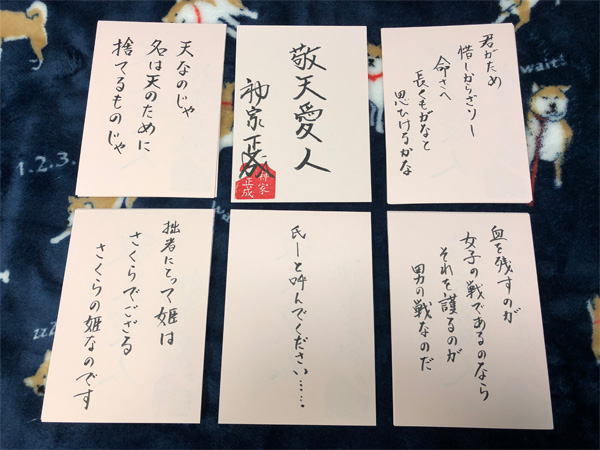 君がため
惜しからざりし
命さへ
長くもがなと
思ひけるかな
敬天愛人
神家正成
神家
正成
天なのじゃ
名は天のために
捨てるものじゃ
血を残すのが
女子の戦であるのなら
それを護るのが
男の戦なのだ
氏ーと呼んでください……
拙者にとって姫は
さくらでござる
さくらの姫なのです
wait!
1.2.3.
zzZ